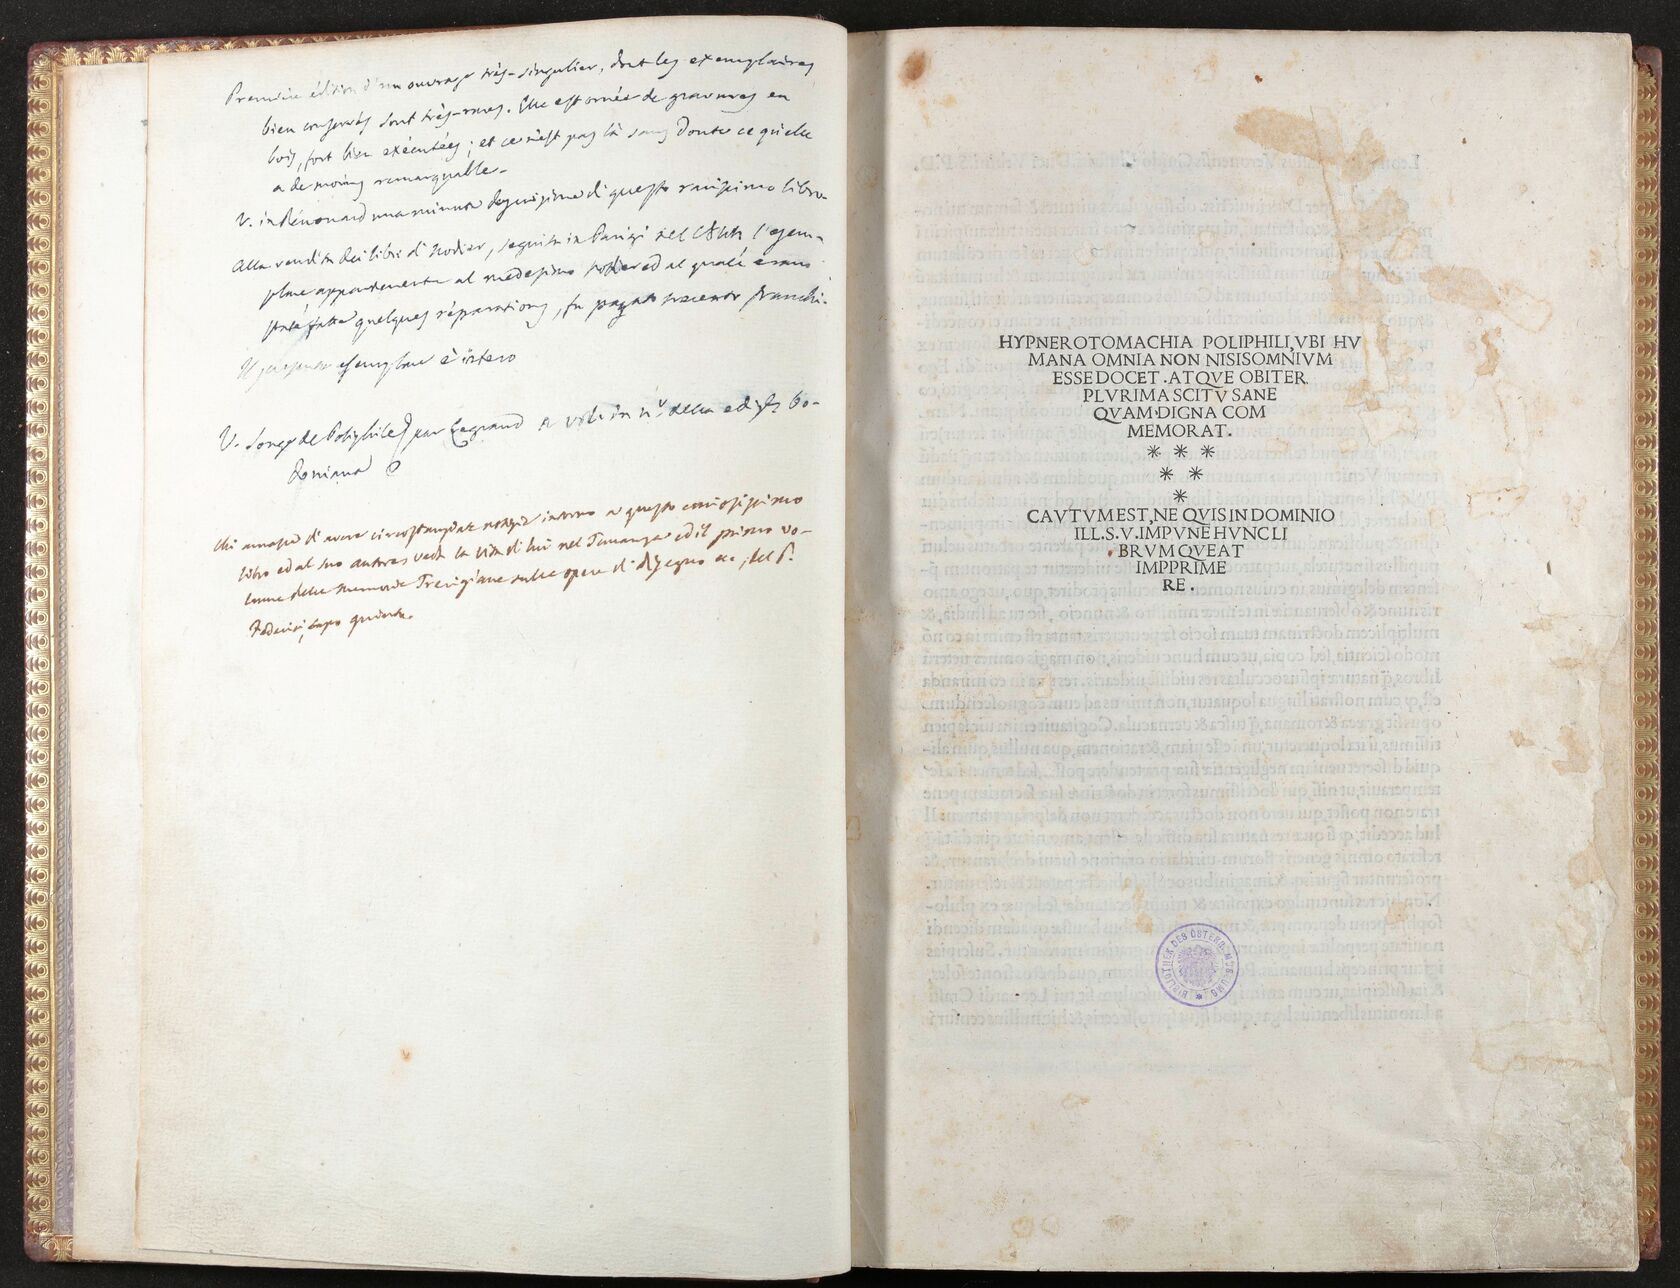 Première édition d'un ouvrage très-singulier, dont les exemplaires
bien conservés sont très-rares. Elle est ornée de gravures en
bois, fort bien exécutées; et ce n'est pas là sans doute ce qu'elle
a de moins remarquable.
V. in Renouard una minuta descrizione di questo rarissimo libro.
Alla vendita dei libri di Nodier, seguita in Parigi nel l'esem-
plare appartenente al medesimo Nodier ed al quale erano
state fatte quelques réparations, fu pagato franchi.
Il presente esemplare è intero
V. Songe de Poliphile par Legrand 2 vol. in 4º della ediz. Bo-
doniana
Chi amasse di avere circostanziate notizie intorno a questo curiosissimo
libro ed al suo autore veda la vita di lui nel Temanza ed il primo vo-
lume delle memorie Trevigiane sulle opere di disegno ec., del P.
Federici, capo quinto.
HYPNEROTOMACHIA POLIPHILI, VBI HV
MANA OMNIA NON NISISOMNIVM
ESSE DOCET . ATQVE OBITER
PLVRIMA SCITV SANE
QVAM DIGNA COM
MEMORAT.
* * *
* *
*
CAVTVM EST, NE QVIS IN DOMINIO
ILL. S. V. IMPVNE HVNC LI
BRVM QVEAT
IMPPRIME
RE .
BIBLIOTHEK DES ÖSTERR. MUSEUMS *